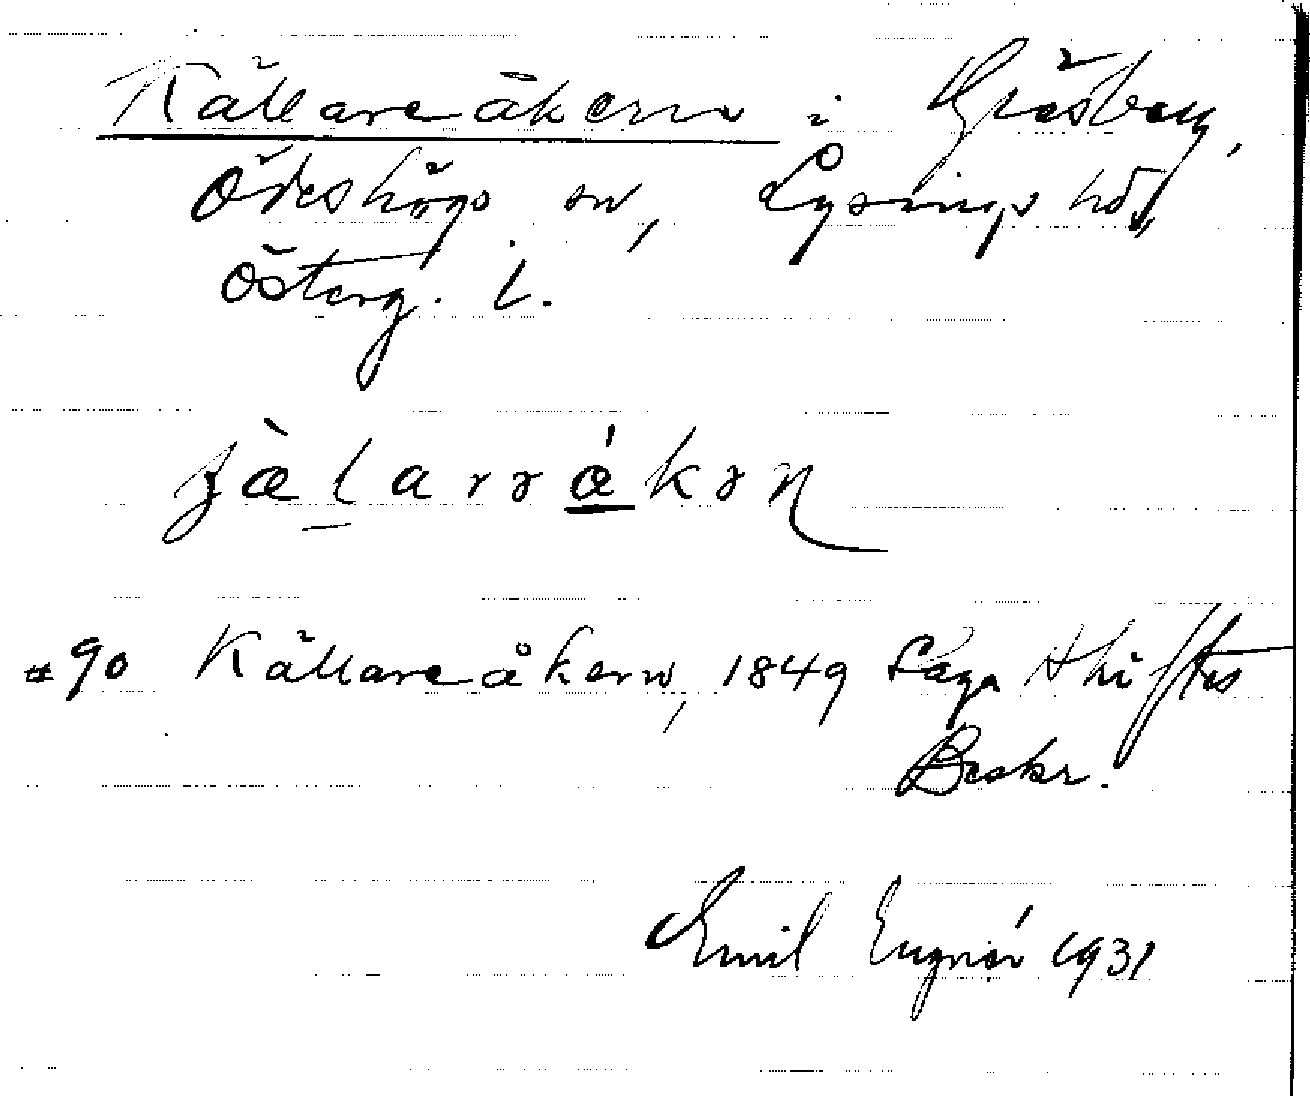 Källareåkern i Gräsberg,
Ödeshögs sn, Lysings hd,
Österg. l.
jälarråkən
#90 Källareåkern, 1849 Laga skiftes
Beskr.
Emil 1931